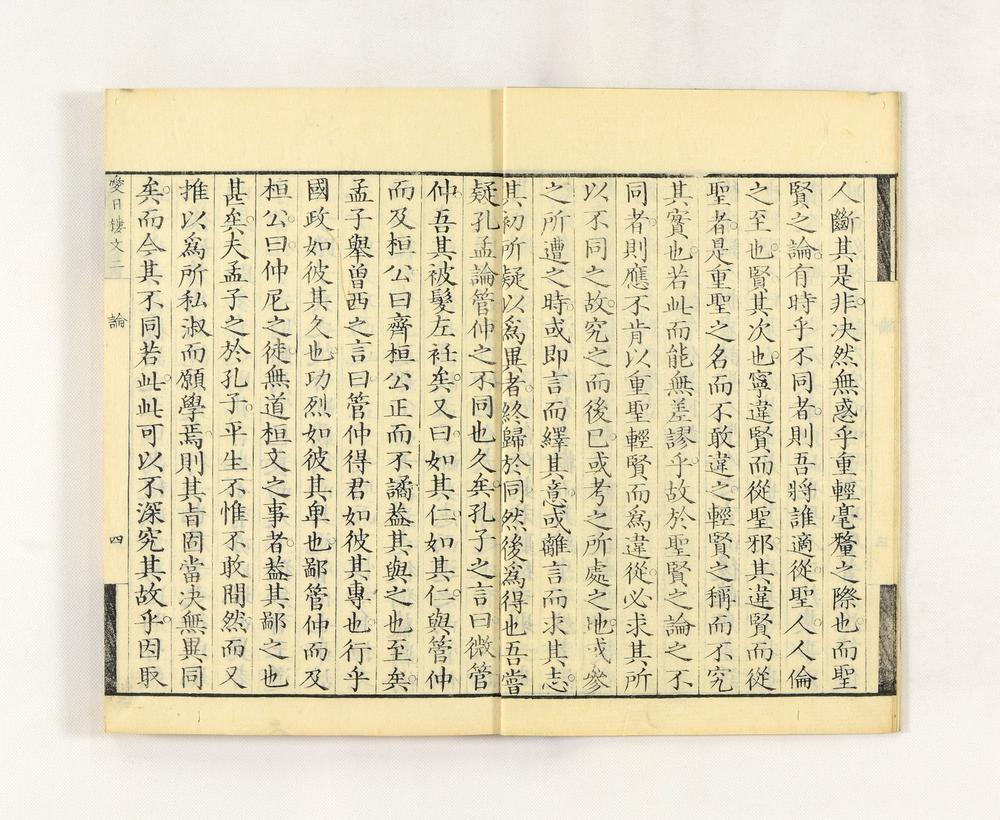 人斷其是非决然無惑乎重輕毫釐之際也而聖
賢之論有時乎不同者則吾將誰適從聖人人倫
之至也賢其次也寧違賢而從聖邪其違賢而從
聖者是重聖之名而不敢違之輕賢之稱而不究
其實也若此而能無差謬乎故於聖賢之論之不
同者則應不肯以重聖輕賢而爲違從必求其所
以不同之故究之而後已或考之所處之地或參
之所遭之時或即言而繹其意或離言而求其志
其初所疑以爲異者終歸於同然後爲得也吾嘗
疑孔孟論管仲之不同也久矣孔子之言曰微管
仲吾其被髮左衽矣又曰如其仁如其仁與管仲
而及桓公曰齊桓公正而不譎葢其與之也至矣
孟子舉曾西之言曰管仲得君如彼其專也行乎
國政如彼其久也功烈如彼其卑也鄙管仲而及
桓公曰仲尼之徒無道桓文之事者葢其鄙之也
甚矣夫孟子之於孔子平生不惟不敢間然而又
推以爲所私淑而願學焉則其旨固當决無異同
矣而今其不同若此此可以不深究其故乎因取
愛日樓文二 論 四